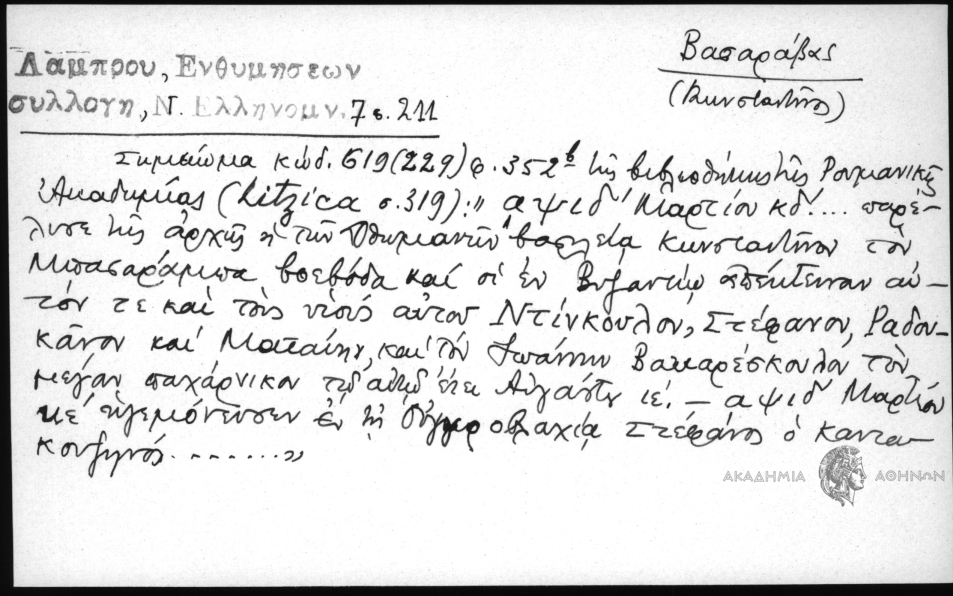 Λάμπρου, Ενθυμησεων
συλλογη, Ν. Ελληνομν. 7 σ. 211
Βασαράβας
(Κωνσταντῖνος)
Σημείωμα κώδ. 619 (229) φ. 352β τῆς βιβλιοθήκης τῆς Ρουμανικῆς
Ἀκαδημίας (Litzica σ. 319): " αψιδ' Μαρτίου κδ'.... παρέ-
λυσε τῆς ἀρχῆς ἡ τῶν Ὀθωμανῶν βασιλεία Κωνσταντῖνον τὸν
Μπασαράμπα βοεβόδα καὶ οἱ ἐν Βυζαντίῳ ἀπέκτειναν αὐ-
τόν τε καὶ τοὺς υἱοὺς αὐτοῦ Ντίνκουλον, Στέφανον, Ραδου-
κάνον καὶ Ματαίην, καὶ τὸν Ἰωάννην Βακαρέσκουλον τὸν
μέγαν παχάρνικον τῷ αὐτῷ ἔτει Αὐγούστῳ ιε'. – αψιδ' Μαρτίου
κε' ἡγεμόνευσεν ἐν τῇ Οὐγγροβλαχίᾳ Στέφανος ὁ Καντα-
κουζηνός ........."
ΑΚΑΔΗΜΙΑ ΑΘΗΝΩΝ